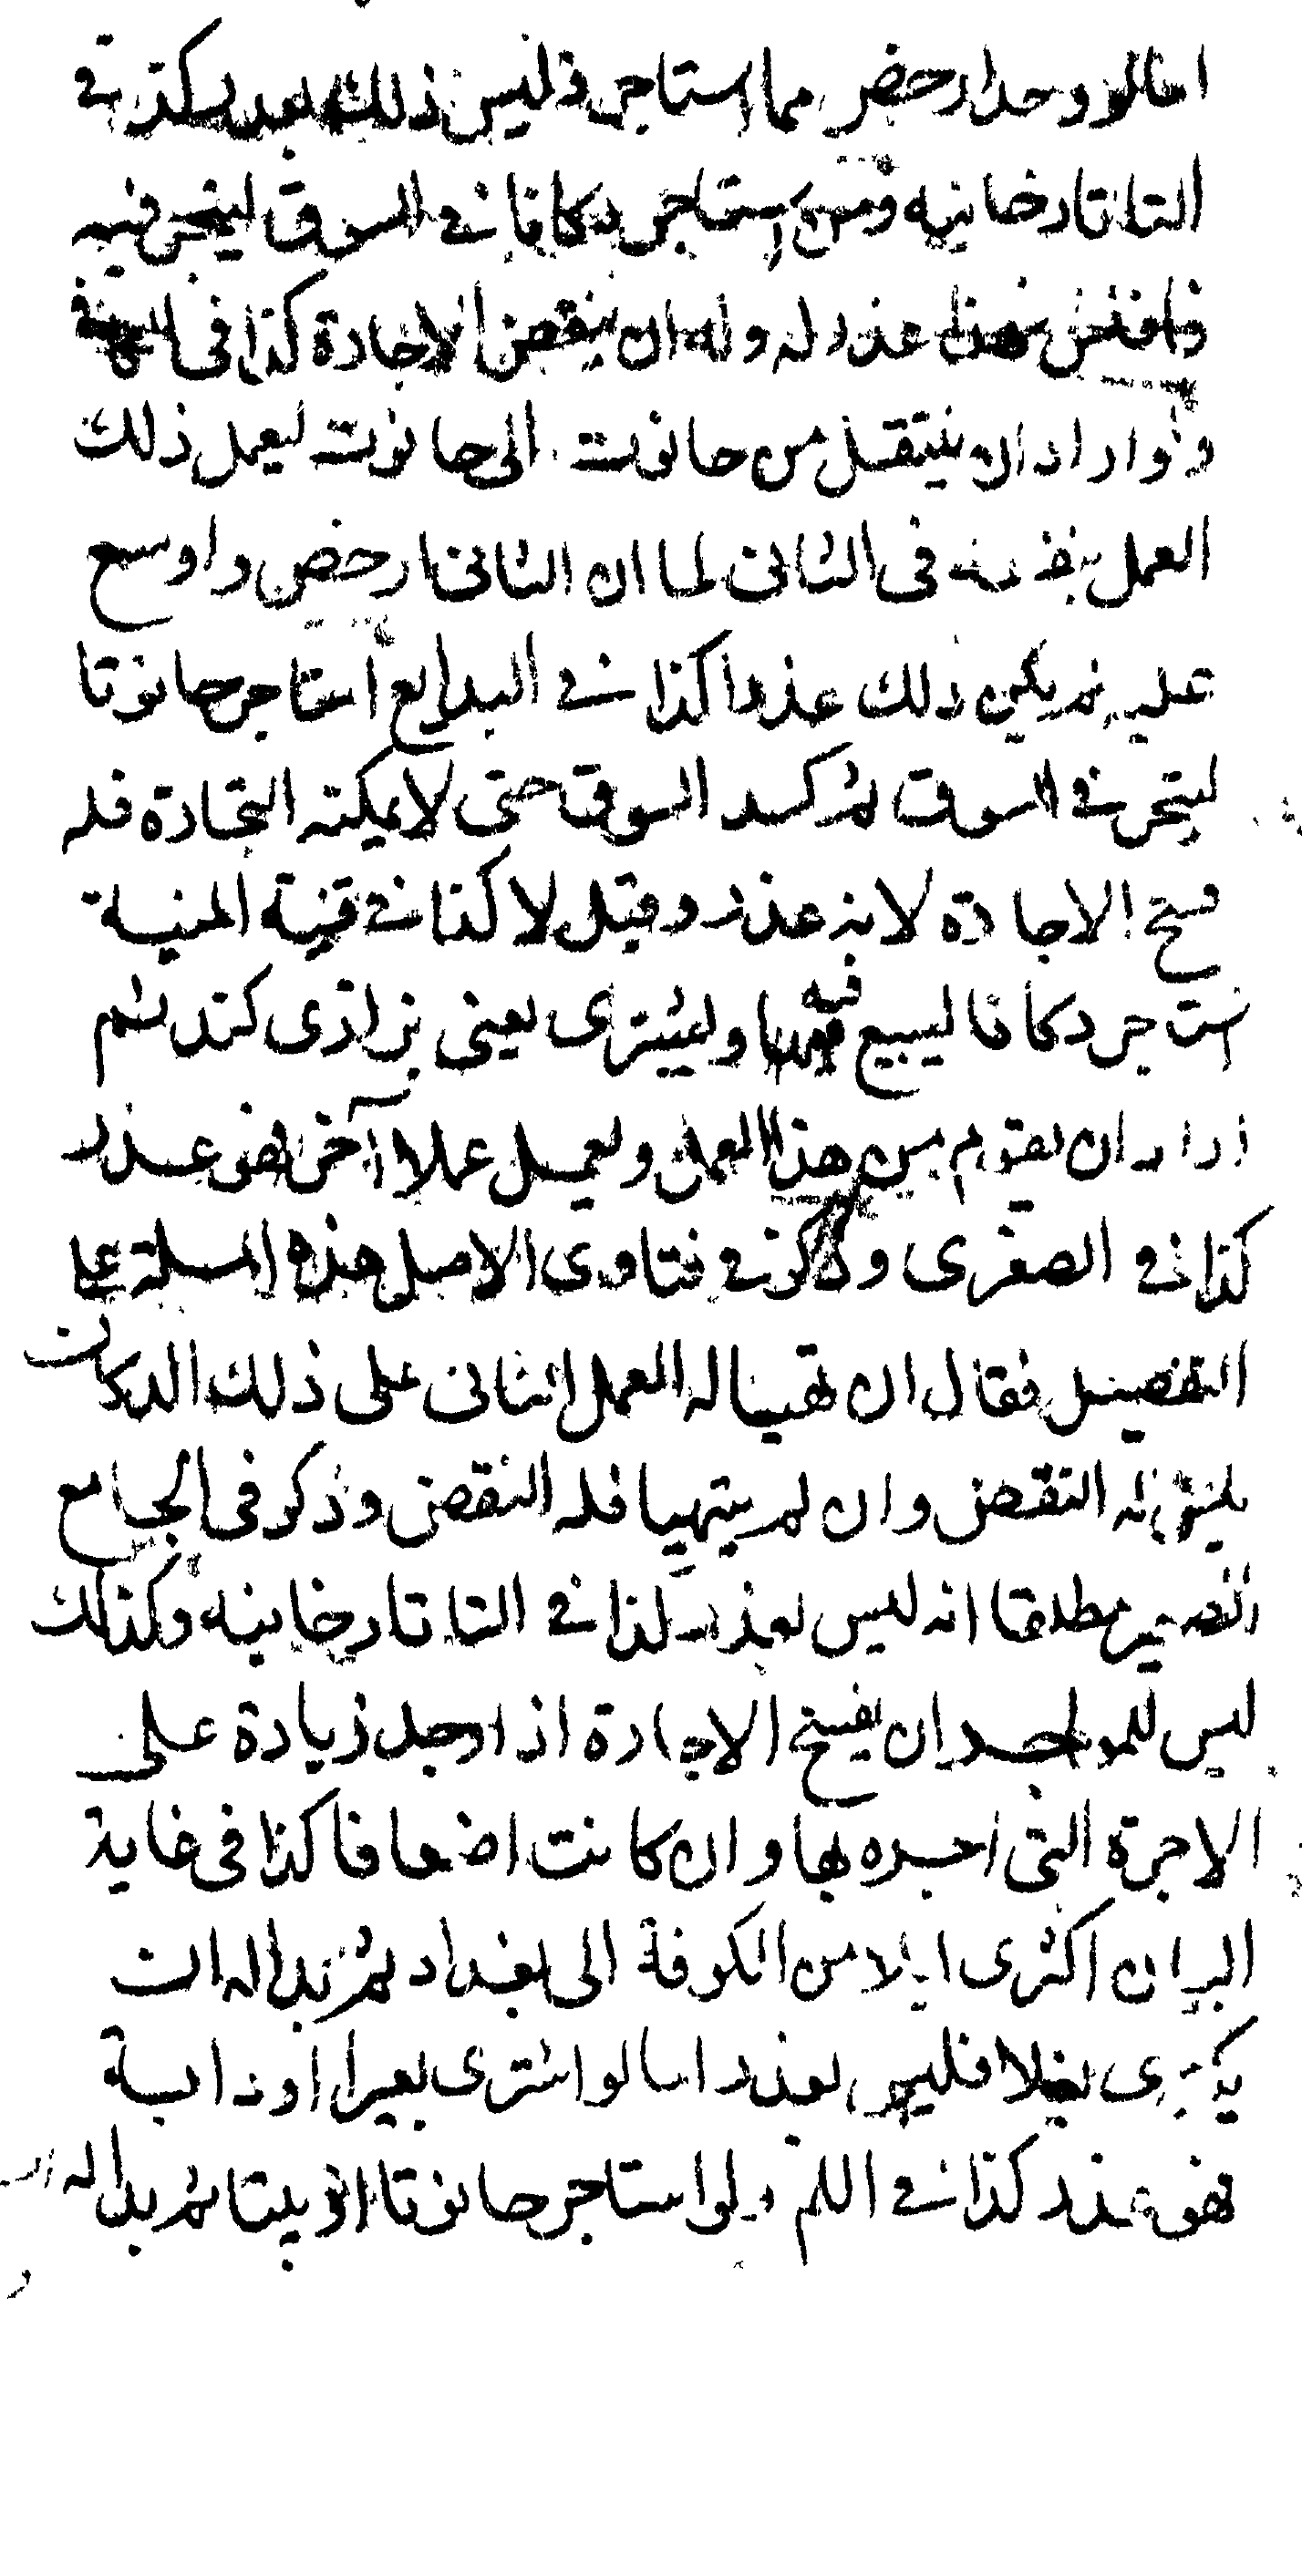 اما لو وجدار خص مما استاجر فليس ذلك بعذر كذا في
التاتارخانيه ومن استاجر دكانا في السوق ليتجر فيه
فافلس فهذا عذر له وله ان ينقض الاجارة كذا في
ولو اراد ان ينتقل من حانوت الى حانوت ليعمل ذلك
العمل بنفسه في الثاني لما ان الثاني ارخص واوسع
عليه لم يكن ذلك عذرا كذا في البدايع استاجر حانوتا
ليتجر في السوق ثم كسد السوق حتى لا يمكنه التجارة فله
فسخ الاجارة لانه عذر وقيل لا كذا في قنية المنية
استاجر دكانا ليبيع فيه ويشترى يعنى بزازى كند ثم
اراد ان يقوم من هذا العمل ويعمل عملا آخر فهو عذر
كذا في الصغرى وذكر في فتاوى الاصل هذه المسلة على
التفصيل فقال ان تهيا له العمل الثاني على ذلك الدكان
ليس له النقض وان لم يتهيا فله النقض وذكر في الجامع
الصغير مطلقا انه ليس بعذر كذا في التاتارخانيه وكذلك
ليس للمواجر ان يفسخ الاجارة اذا وجد زيادة على
الاجرة التي اجره بها وان كانت اضعافا كذا في غاية
البيان اكترى ابلا من الكوفة الى بغداد ثم بدا له ان
يكترى بغلا فليس بعذر اما لو اشترى بعيرا او دابة
فهو عذر كذا في الملم ولو استاجر حانوتا او بيتا ثم بدا له ان